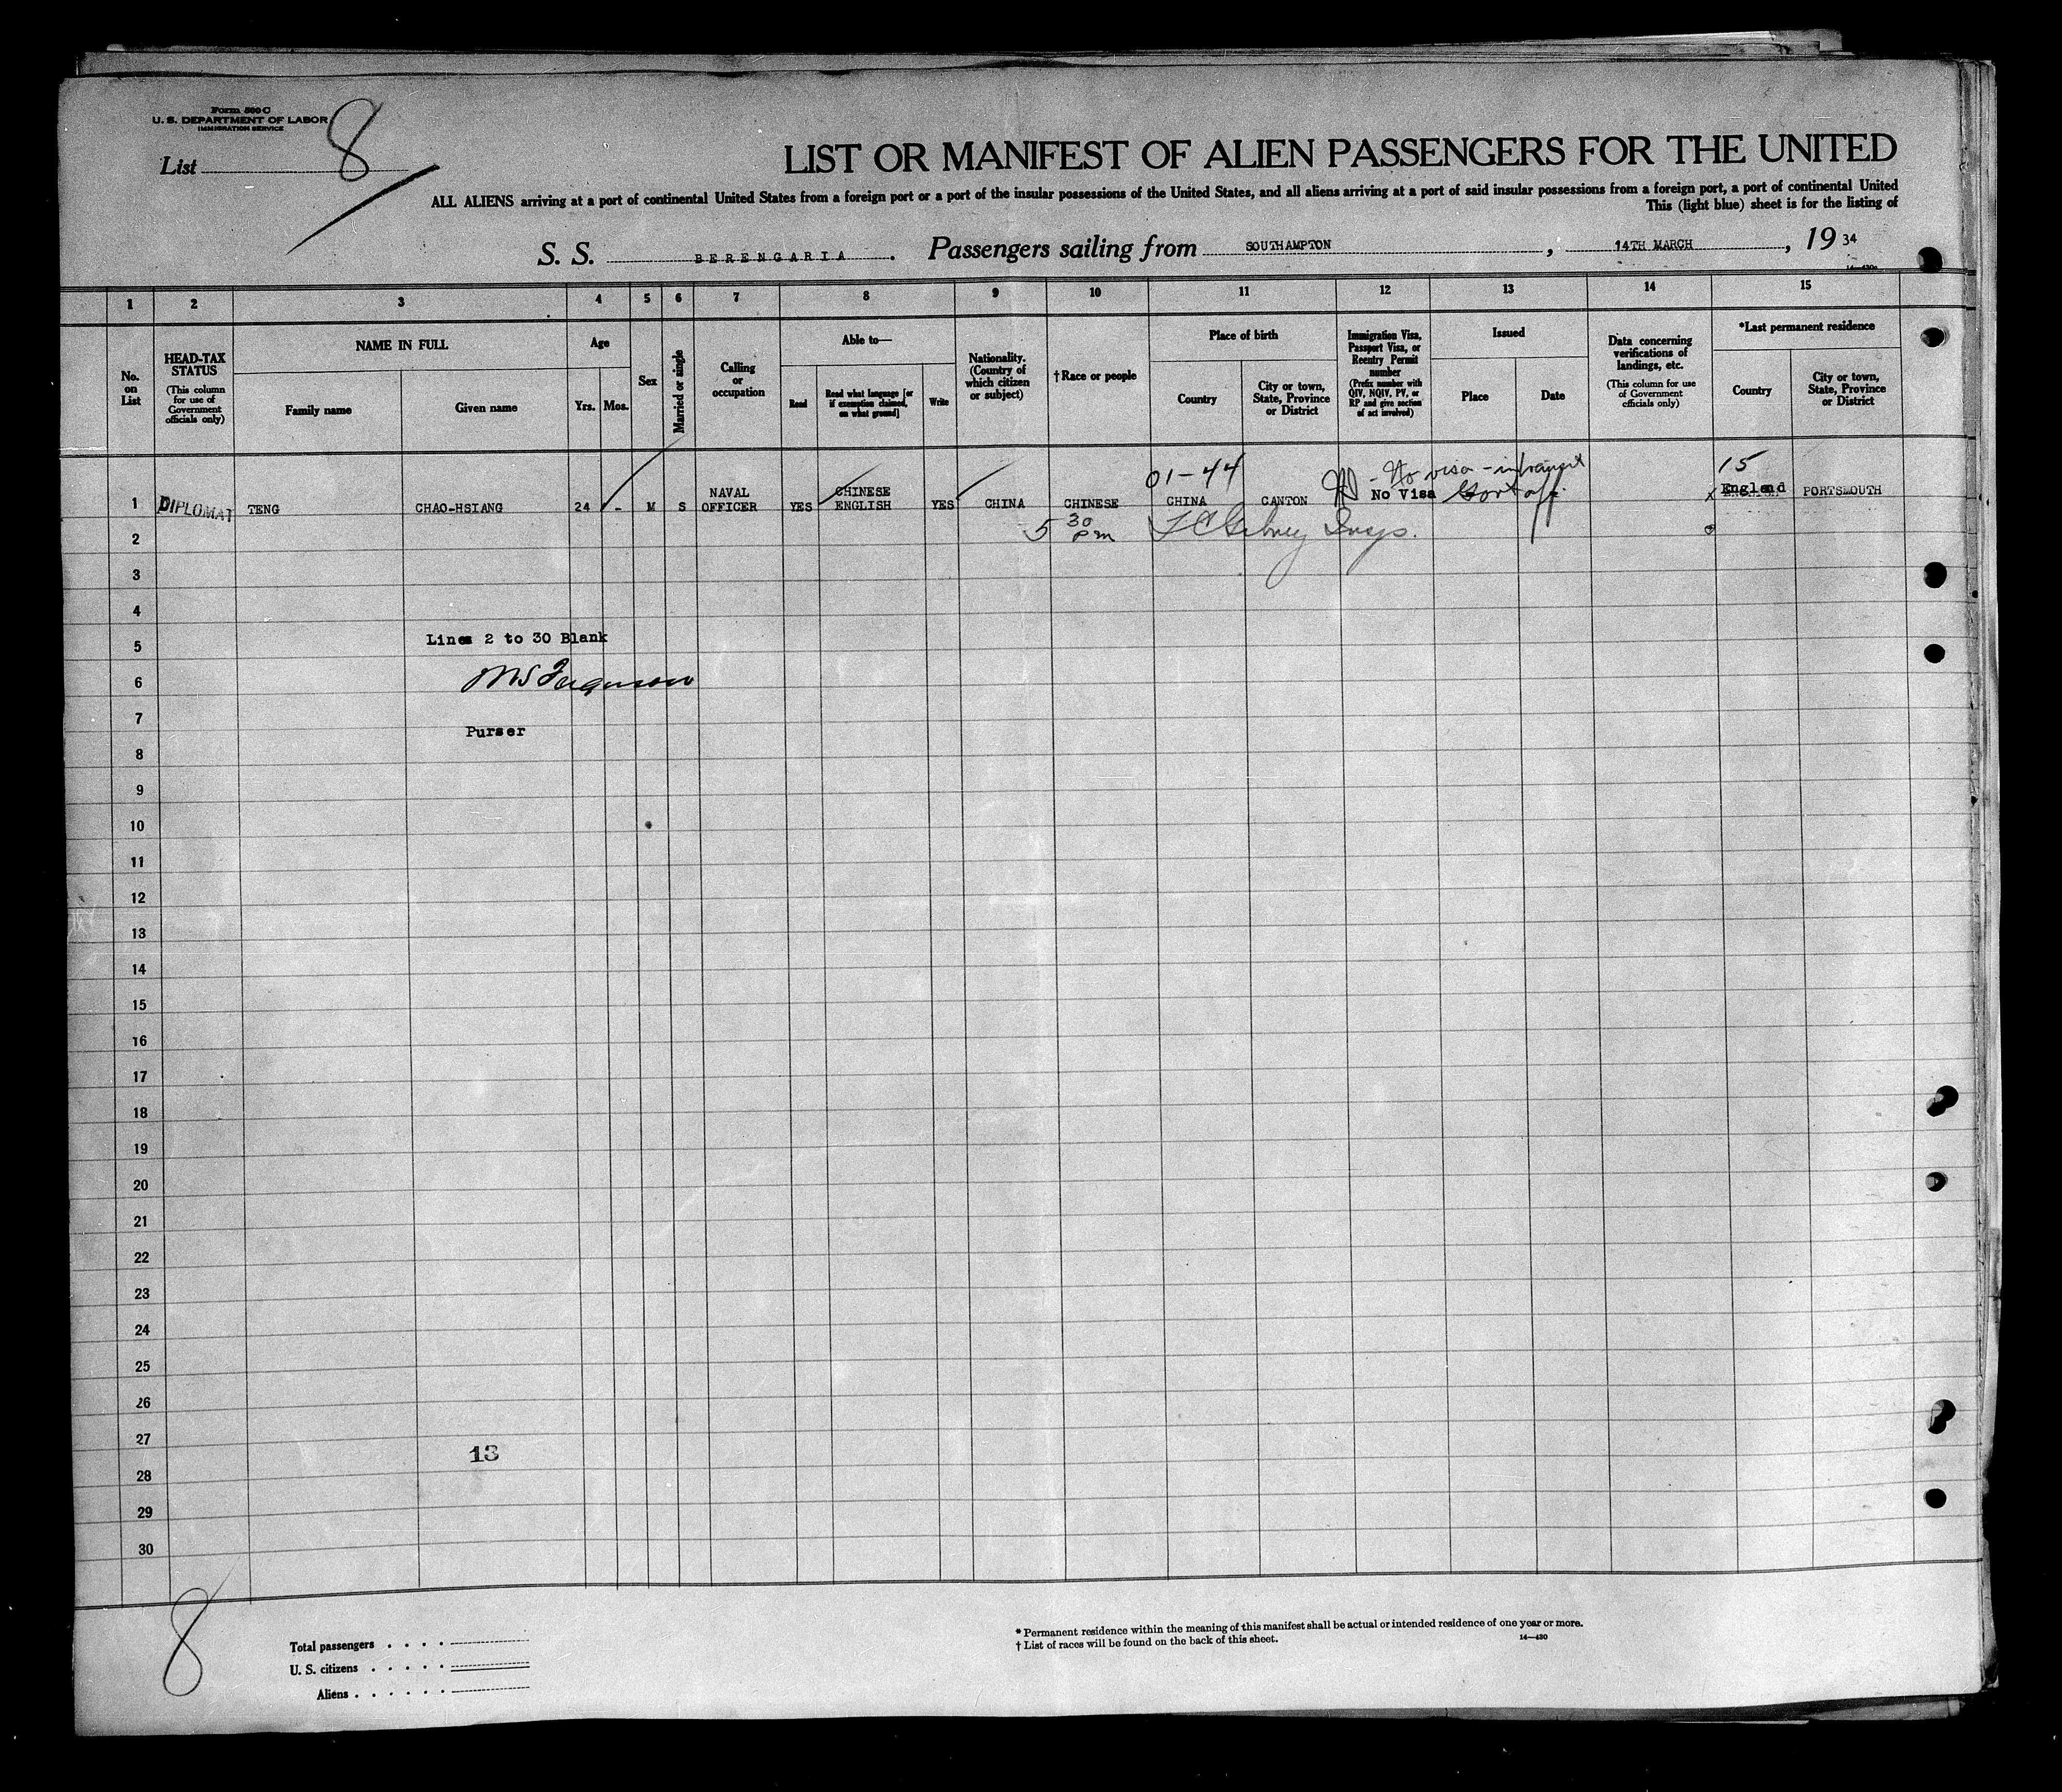 Form 500 C
U. S. DEPARTMENT OF LABOR
IMMIGRATION SERVICE
List 8
LIST OR MANIFEST OF ALIEN PASSENGERS FOR THE UNITED
ALL ALIENS arriving at a port of continental United States from a foreign port or a port of the insular possessions of the United States, and all aliens arriving at a port of said insular possessions from a foreign port, a port of continental United
This (light blue) sheet is for the listing of
S. S. BERENGARIA. Passengers sailing from SOUTHAMPTON, 14TH MARCH, 19 34
1 2 3 4 5 6 7 8 9 10 11 12 13 14 15
No. on List
HEAD-TAX STATUS (This column for use of Government officials only)
NAME IN FULL
Family name
Given name
Age
Yrs. Mos.
Sex
Married or single
Calling or occupation
Able to—
Read
Read what language [or if exemption claimed, on what ground]
Write
Nationality. (Country of which citizen or subject)
†Race or people
Place of birth
Country
City or town, State, Province or District
Immigration Visa, Passport Visa, or Reentry Permit number (Prefix number with QIV, NQIV, PV, or RP and give section of act involved)
Issued
Place
Date
Data concerning verifications of landings, etc. (This column for use of Government officials only)
*Last permanent residence
Country
City or town, State, Province or District
01-44 - No visa - in transit 15
1 DIPLOMAT TENG CHAO-HSIANG 24 - M S NAVAL OFFICER YES CHINESE ENGLISH YES CHINA CHINESE CHINA CANTON No Visa Govt off. x England PORTSMOUTH
2 5 30 pm Insp.
3
4
5 Lines 2 to 30 Blank
6 Ferguson
7
Purser
8
9
10
11
12
13
14
15
16
17
18
19
20
21
22
23
24
25
26
27
13
28
29
30
8
Total passengers . . . .
U. S. citizens . . . . .
Aliens . . . . . .
* Permanent residence within the meaning of this manifest shall be actual or intended residence of one year or more.
† List of races will be found on the back of this sheet.
14—430